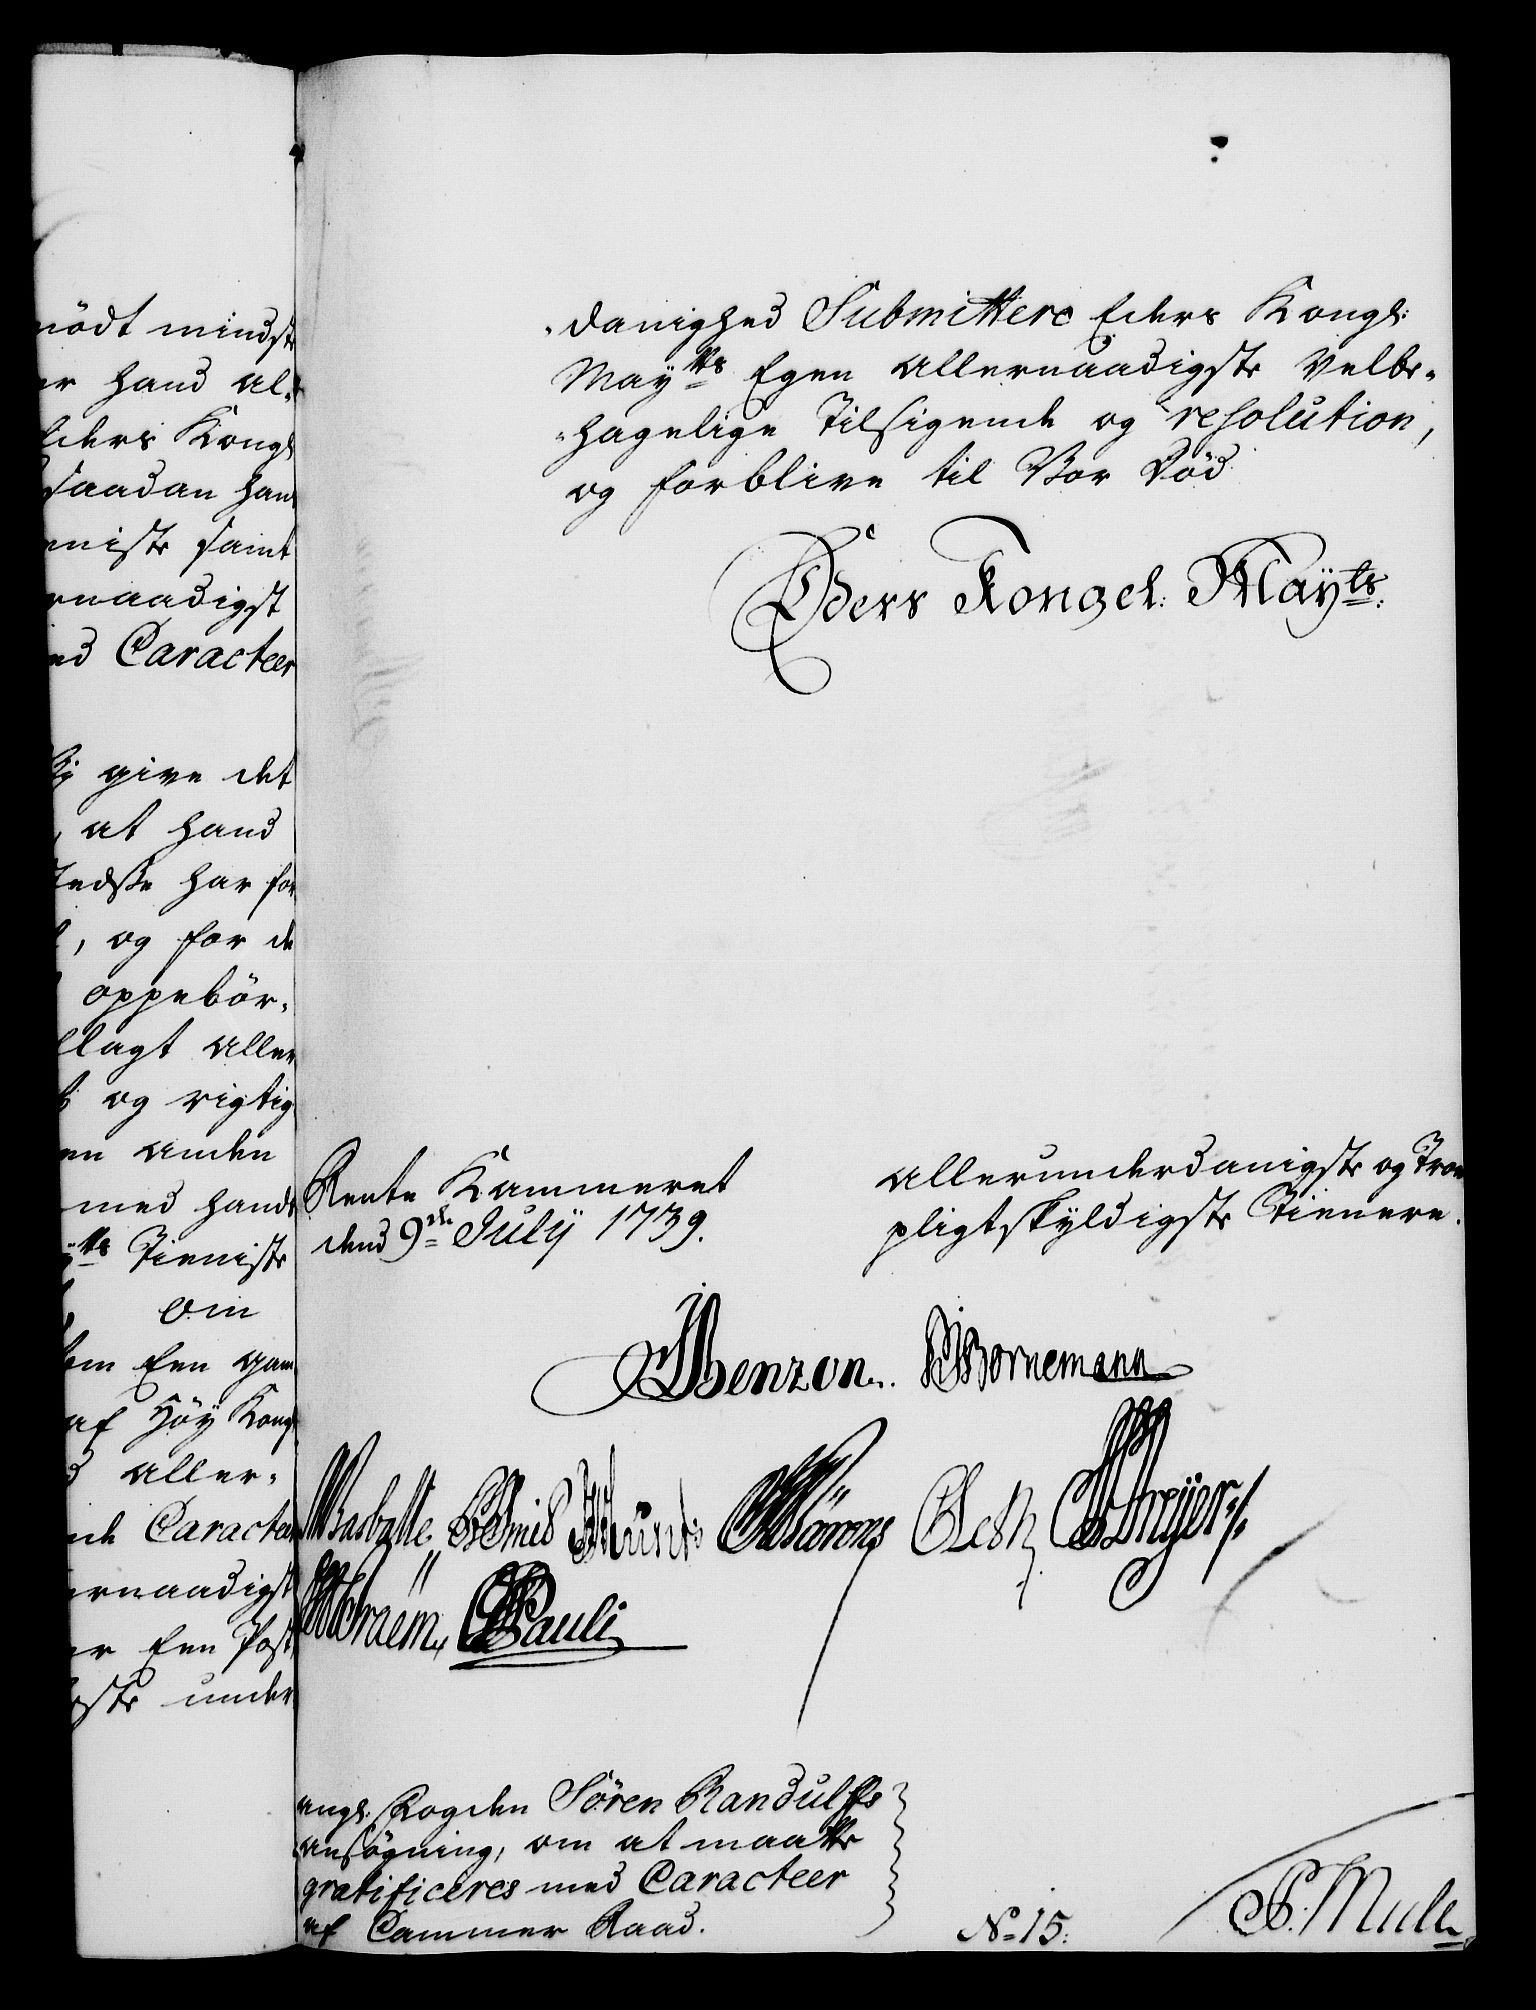 nödt mindste
er hand al-
Eders Kongl
saadan han
eniste samt
ernaadigst
ed Caracteer
give det
, at hand
Tedsse har for
, og for de
oppebör-
llagt aller
og rigtig
en anden
med hands
yts Tieniste
om
som Een gam
af Höy Kong
d aller-
nde Caracteer
ernaadigst
er Een Post
gste under
-danighed Submittere Eders Kongl:
Mayts Egen allernaadigste Velbe-
-hagelige Tilsigende og resolution,
og forblive til Vor Död
Eders Kongel: Mayts:
Rente Kammeret
dend 9de July 1739.
allerunderdanigste og Troe
pligtskyldigste Tienere.
Benzon. Bornemann
Basballe Smid Munt Värens Leth Dreyer
Schraem Pauli
angl: Fogden Sören Randulffs
ansögning, om at maatte
gratificeres med Caracteer
af Cammer Raad.
No 15.
P: Mule